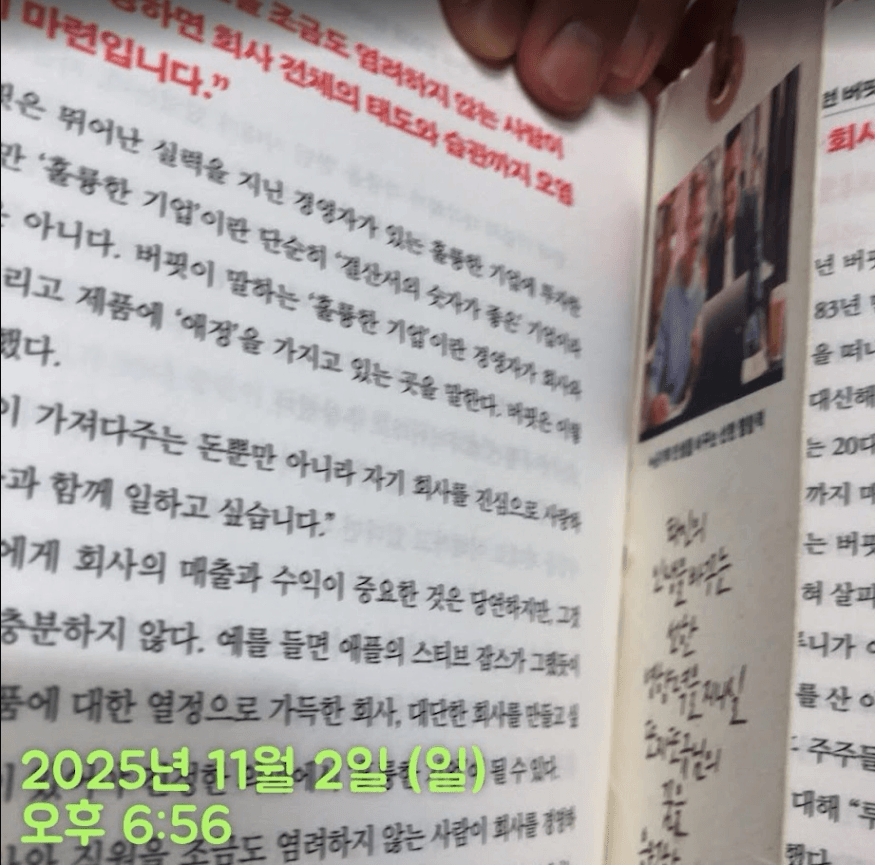 조금도 염려하지 않는 사람이
하면 회사 전체의 태도와 습관까지 오염
마련입니다.”
은 뛰어난 실력을 지닌 경영자가 있는 훌륭한 기업에 투자한
만 ‘훌륭한 기업’이란 단순히 ‘결산서의 숫자가 좋은’ 기업이라
아니다. 버핏이 말하는 ‘훌륭한 기업’이란 경영자가 회사와
리고 제품에 ‘애정’을 가지고 있는 곳을 말한다. 버핏은 이렇
했다.
이 가져다주는 돈뿐만 아니라 자기 회사를 진심으로 사랑하
과 함께 일하고 싶습니다.”
에게 회사의 매출과 수익이 중요한 것은 당연하지만, 그것
충분하지 않다. 예를 들면 애플의 스티브 잡스가 그랬듯이
품에 대한 열정으로 가득한 회사, 대단한 회사를 만들고 싶
될 수 있다.
직원을 조금도 염려하지 않는 사람이 회사를 경영하
2025년 11월 2일 (일)
오후 6:56
타인의
인생을 바꾸는
선한
영향력을 지니실
같은
현 버핏
회사
년 버핏
83년
을 떠나
대신해
는 20대
까지 매
는 버핏
혀 살피
니가
를 산
주주들
대해 “투
했다